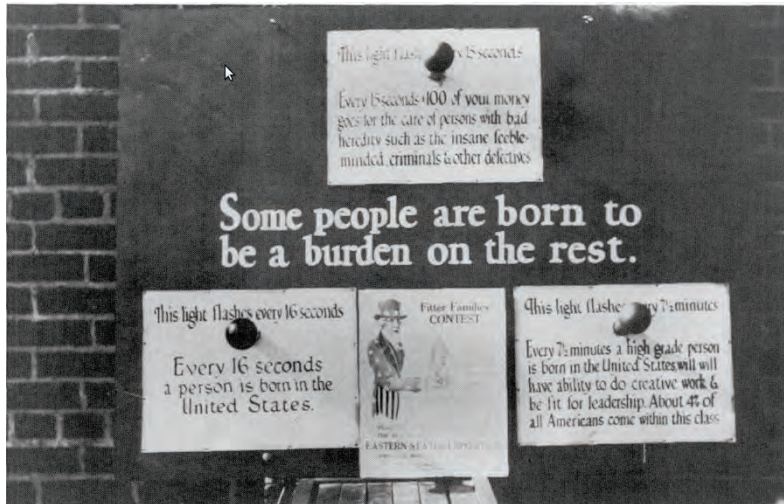 This light flashes every 15 seconds
Every 15 seconds $100 of your money
goes for the care of persons with bad
heredity such as the insane feeble-
minded, criminals & other defectives
Some people are born to
be a burden on the rest.
This light flashes every 16 seconds
Every 16 seconds
a person is born in the
United States.
Fitter Families
CONTEST
EASTERN STATES EXPOSITION
This light flashes every 7½ minutes
Every 7½ minutes a high grade person
is born in the United States, will will
have ability to do creative work &
be fit for leadership. About 4% of
all Americans come within this class